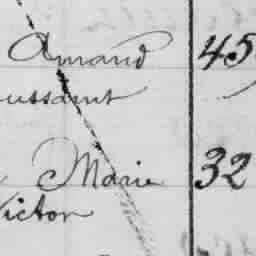 Amand 45
oussaint
Marie 32
Victor